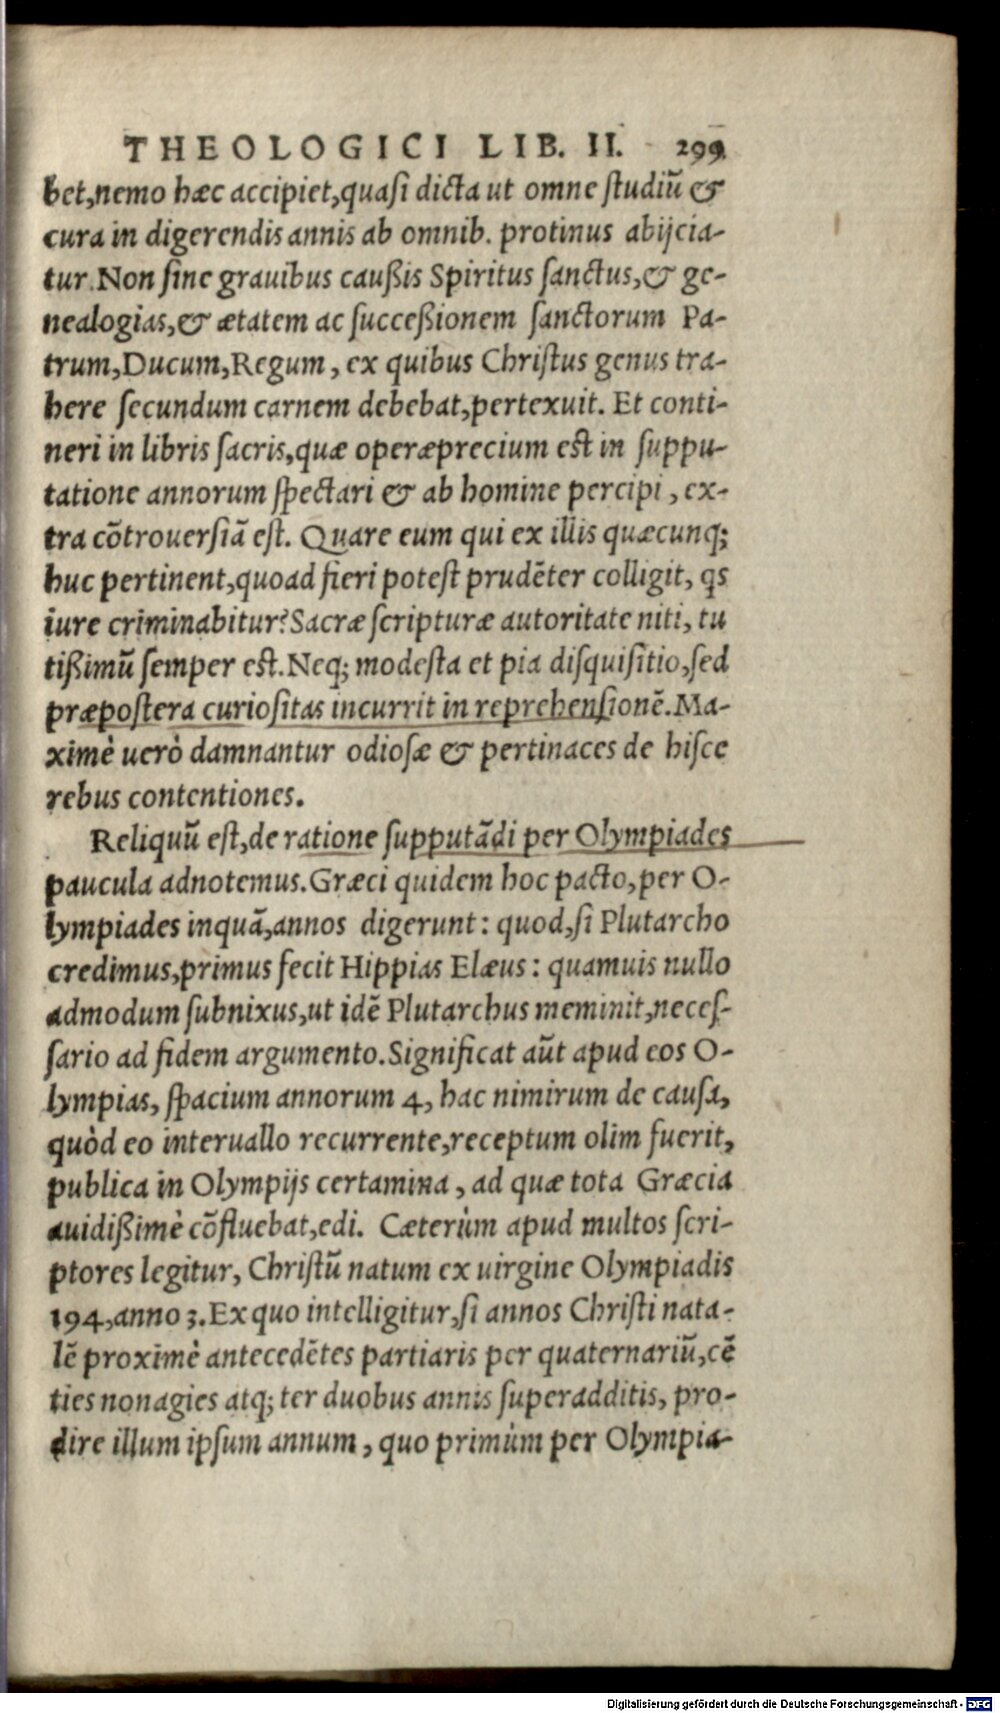 THEOLOGICI LIB. II. 299
bet,nemo hæc accipiet,quaſi dicta ut omne ſtudiū &
cura in digerendis annis ab omnib. protinus abijcia-
tur.Non ſine grauibus cauſſis Spiritus ſanctus,& ge-
nealogias,& ætatem ac ſucceſſionem ſanctorum Pa-
trum,Ducum,Regum, ex quibus Chriſtus genus tra-
here ſecundum carnem debebat,pertexuit. Et conti-
neri in libris ſacris,quæ operæprecium eſt in ſuppu-
tatione annorum ſpectari & ab homine percipi, ex-
tra cōtrouerſiā eſt. Quare eum qui ex illis quæcunq;
huc pertinent,quoad fieri poteſt prudēter colligit, qs
iure criminabitur?Sacræ ſcripturæ autoritate niti, tu
tiſſimū ſemper eſt.Neq; modeſta et pia diſquiſitio,ſed
præpoſtera curioſitas incurrit in reprehenſionē.Ma-
ximè uerò damnantur odioſæ & pertinaces de hiſce
rebus contentiones.
Reliquū eſt,de ratione ſupputādi per Olympiades
paucula adnotemus.Græci quidem hoc pacto,per O-
lympiades inquā,annos digerunt: quod,ſi Plutarcho
credimus,primus fecit Hippias Elæus: quamuis nullo
admodum ſubnixus,ut idē Plutarchus meminit,neceſ-
ſario ad fidem argumento.Significat aūt apud eos O-
lympias, ſpacium annorum 4, hac nimirum de cauſa,
quòd eo interuallo recurrente,receptum olim fuerit,
publica in Olympijs certamina, ad quæ tota Græcia
auidiſſimè cōfluebat,edi. Cæterùm apud multos ſcri-
ptores legitur, Chriſtū natum ex uirgine Olympiadis
194,anno 3.Ex quo intelligitur,ſi annos Chriſti nata-
lē proximè antecedētes partiaris per quaternariū,cē
ties nonagies atq; ter duobus annis ſuperadditis, pro-
dire illum ipſum annum, quo primùm per Olympia-
Digitalisierung gefördert durch die Deutsche Forschungsgemeinschaft - DFG